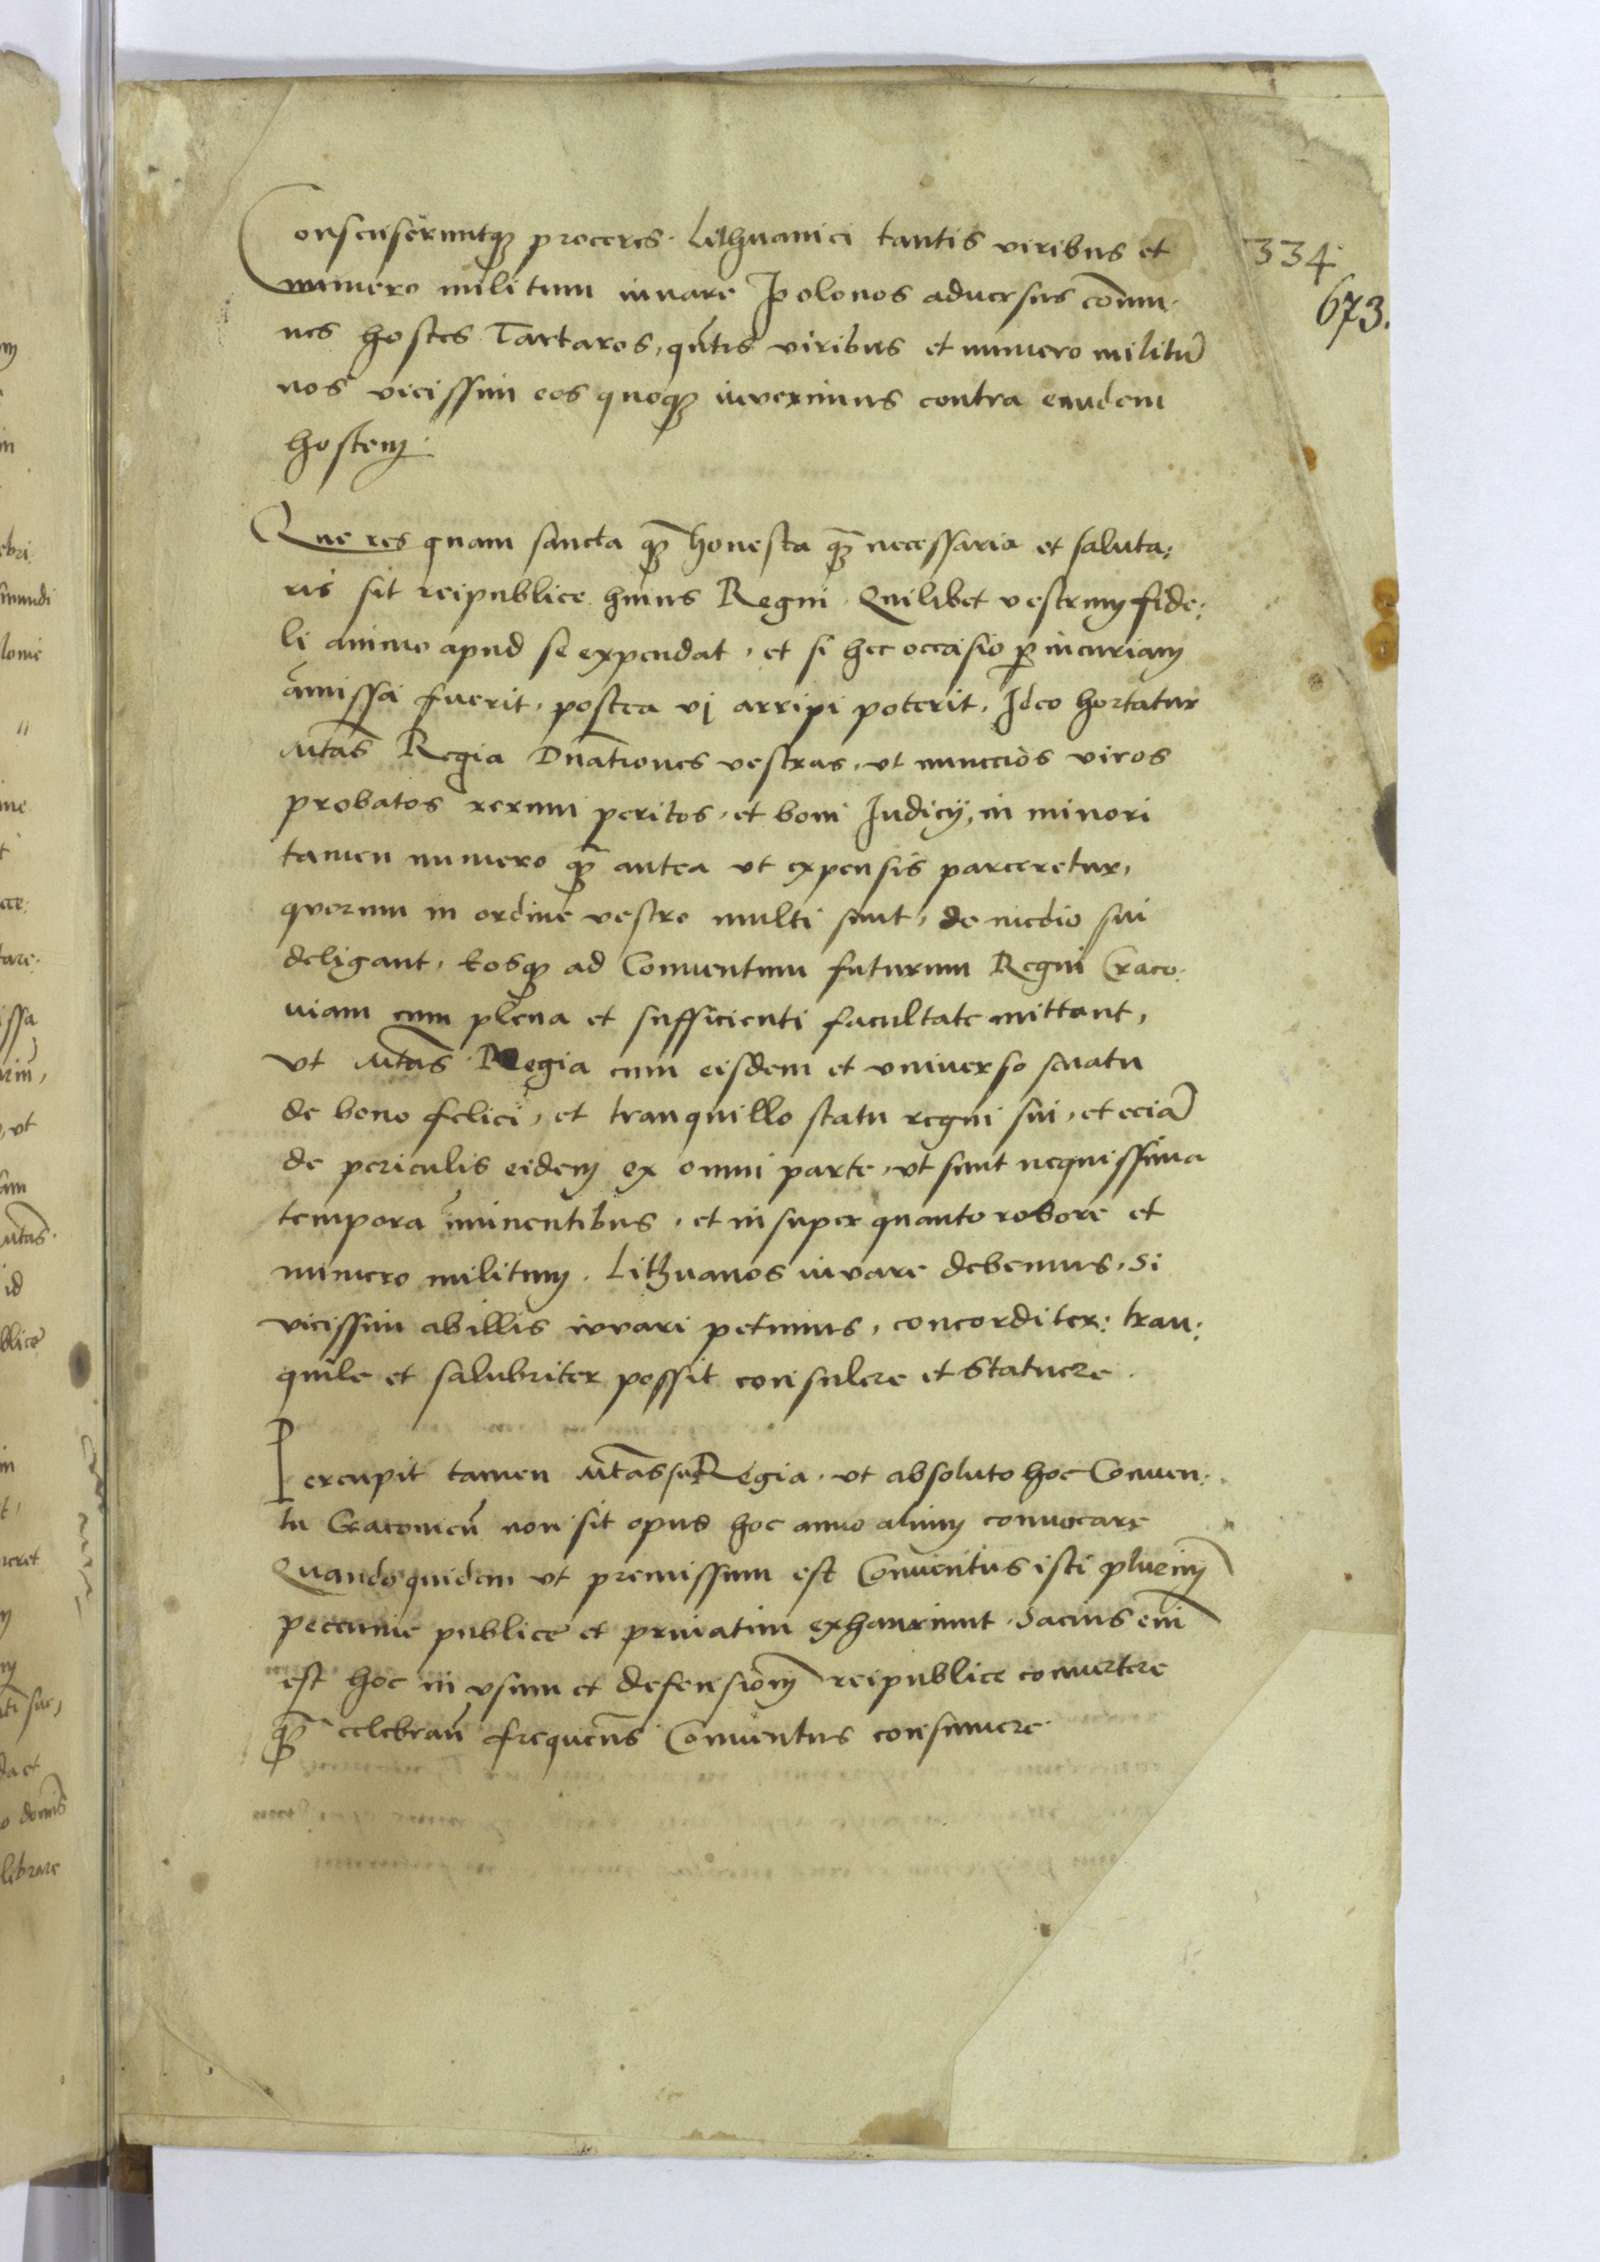 Consenseruntq₃ proceres Lithuanici tantis viribus et
334
numero militum iuvare Polonos adversus com̄u-
673.
nes hostes Tartaros, qn̄tis viribus et numero militū
nos vicissim eos quoq₃ iuverimus contra eundem
hostem.
Que res quam sancta q̄₃ honesta q̄₃ necessaria et saluta:
ris sit reipublice huius Regni Quilibet vestrum fide:
li animo apud se expendat, et si hec occasio ꝑ incuriam
amissa fuerit, postea vj arripi poterit. Ideo hortatur
Mtas Regia Dnationes vestras, vt nunccios viros
probatos rerum peritos, et boni Iudicij, in minori
tamen numero q̄₃ antea vt expensis parceretur,
quorum in ordine vestro multi sunt, de medio sui
deligant, Eosq₃ ad Conventum futurum Regni Craco:
uiam cum plena et sufficienti facultate mittant,
vt Mtas Regia cum eisdem et vniverso senatu
de bono felici, et tranquillo statu regni sui, et eciā
de periculis eidem ex omni parte, vt sunt nequissima
tempora īminentibus, et insuper quanto robore et
numero militum Lithuanos iuvare debemus, si
vicissim ab illis iuvari petimus, concorditer: tran:
quile et salubriter possit consulere et statuere.
Percupit tamen Mtas sua Regia, vt absoluto hoc Conuen:
tu Cracouien̄ non sit opus hoc anno alium convocare
Quandoquidem vt premissum est Conventus isti plurim̄
peccunie publice et privatim exhauriunt. Sacius eni
est hoc in vsum et defensionem reipublice convertere
q̄₃ celebran̄ frequen̄s Conventus consumere.